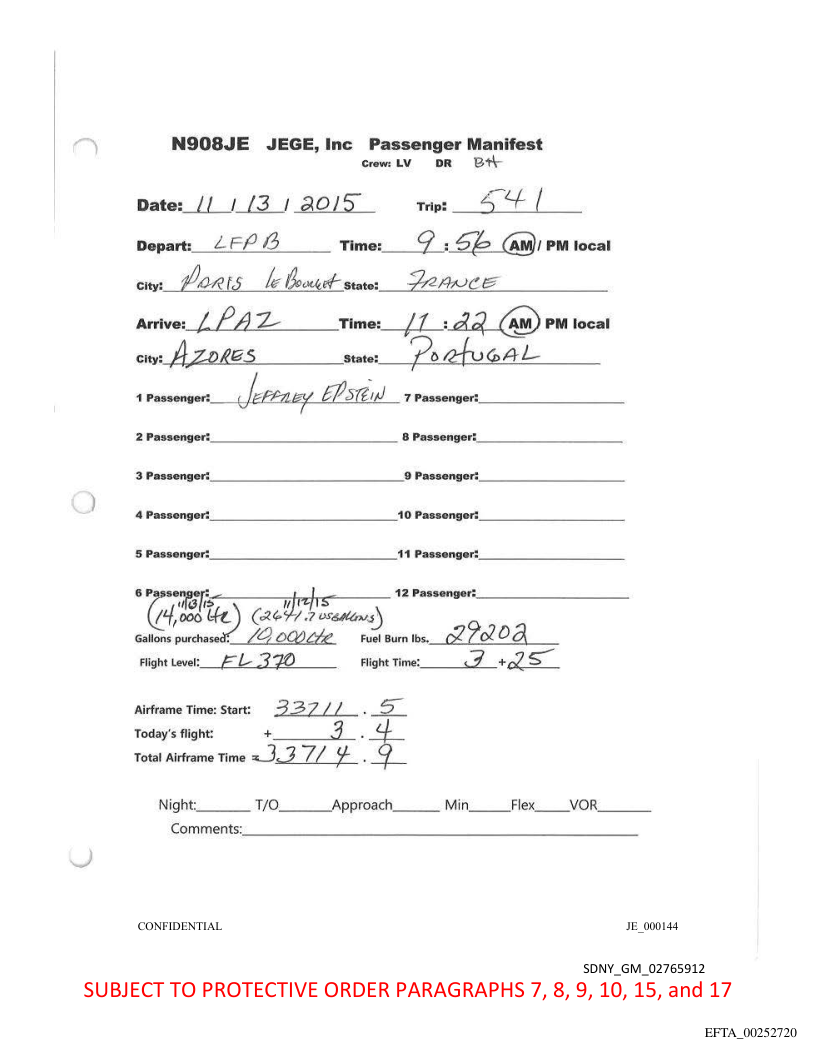 N908JE JEGE, Inc Passenger Manifest
Crew: LV DR BH
Date: 11 / 13 / 2015 Trip: 541
Depart: LFPB Time: 9 : 56 AM / PM local
City: PARIS LE Bourget State: FRANCE
Arrive: LPAZ Time: 11 : 22 AM PM local
City: AZORES State: PORTUGAL
1 Passenger: JEFFREY EPSTEIN 7 Passenger:
2 Passenger: 8 Passenger:
3 Passenger: 9 Passenger:
4 Passenger: 10 Passenger:
5 Passenger: 11 Passenger:
6 Passenger: 12 Passenger:
11/13/15 11/12/15
(14,000 Ltr) (2641.7 US GALLONS)
Gallons purchased: 10,000 Ltr Fuel Burn lbs. 29202
Flight Level: FL 370 Flight Time: 3 + 25
Airframe Time: Start: 33711 . 5
Today's flight: + 3 . 4
Total Airframe Time = 33714 . 9
Night: T/O Approach Min Flex VOR
Comments:
CONFIDENTIAL JE_000144
SDNY_GM_02765912
SUBJECT TO PROTECTIVE ORDER PARAGRAPHS 7, 8, 9, 10, 15, and 17
EFTA_00252720